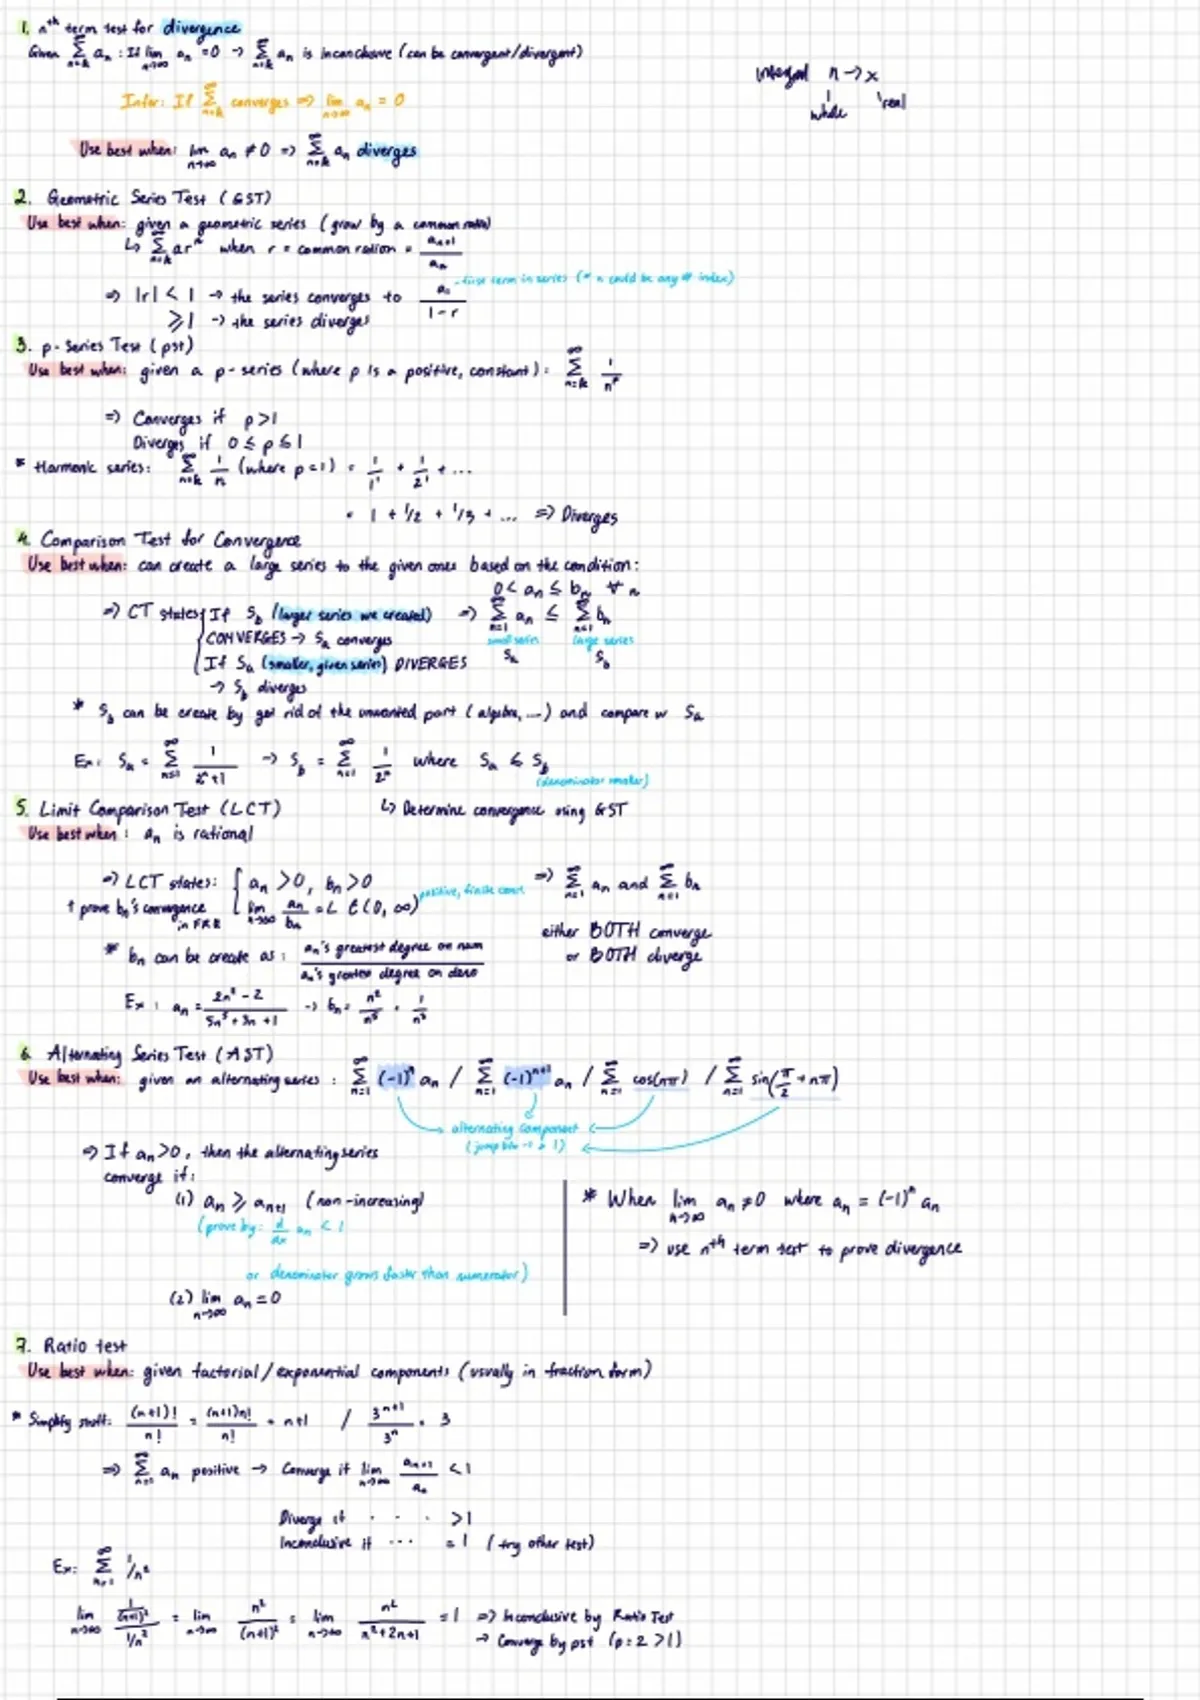 1. nth term test for divergence
Given ∑_{n=k}^∞ a_n : If lim_{n→∞} a_n = 0 → ∑_{n=k}^∞ a_n is inconclusive (can be convergent/divergent)
integral n → x
whole real
Infer: If ∑_{n=k}^∞ converges => lim_{n→∞} a_n = 0
Use best when: lim_{n→∞} a_n ≠ 0 => ∑_{n=k}^∞ a_n diverges
2. Geometric Series Test (GST)
Use best when: given a geometric series (grow by a common ratio)
↳ ∑_{n=k}^∞ ar^n when r = common ration = a_{n+1}/a_n
=> |r| < 1 → the series converges to a_n/(1-r) - first term in series (* n could be any # index)
≥ 1 → the series diverges
3. p-Series Test (pst)
Use best when: given a p-series (where p is a positive, constant): ∑_{n=k}^∞ 1/n^p
=> Converges if p > 1
Diverges if 0 ≤ p ≤ 1
* Harmonic series: ∑_{n=k}^∞ 1/n (where p=1) = 1/1^1 + 1/2^1 + ...
= 1 + 1/2 + 1/3 + ... => Diverges
4. Comparison Test for Convergence
Use best when: can create a large series to the given ones based on the condition:
0 < a_n ≤ b_n ∀ n
=> CT states { If S_b (larger series we created) => ∑_{n=1}^∞ a_n ≤ ∑_{n=1}^∞ b_n
CONVERGES → S_a converges small series large series
If S_a (smaller, given series) DIVERGES S_a S_b
→ S_b diverges
* S_b can be create by get rid of the unwanted part (algebra, ...) and compare w S_a
Ex: S_a = ∑_{n=1}^∞ 1/(2^n+1) → S_b = ∑_{n=1}^∞ 1/2^n where S_a ≤ S_b
(denominator smaller)
5. Limit Comparison Test (LCT) ↳ Determine convergence using GST
Use best when: a_n is rational
=> LCT states: { a_n > 0, b_n > 0 => ∑_{n=1}^∞ a_n and ∑_{n=1}^∞ b_n
† prove b_n's convergence lim_{n→∞} a_n/b_n = L ∈ (0, ∞) positive, finite const.
in FRR either BOTH converge
* b_n can be create as: a_n's greatest degree on num / a_n's greatest degree on deno or BOTH diverge
Ex: a_n = (2n² - 2)/(5n⁵ + 3n + 1) → b_n = n²/n⁵ = 1/n³
6. Alternating Series Test (AST)
Use best when: given an alternating series: ∑_{n=1}^∞ (-1)^n a_n / ∑_{n=1}^∞ (-1)^{n+1} a_n / ∑_{n=1}^∞ cos(nπ) / ∑_{n=1}^∞ sin(π/2 + nπ)
alternating component
(jump btw -1 & 1)
=> If a_n > 0, then the alternating series
converge if:
(1) a_n ≥ a_{n+1} (non-increasing)
(prove by: d/dx a_n < 1
or denominator grows faster than numerator)
(2) lim_{n→∞} a_n = 0
* When lim_{n→∞} a_n ≠ 0 where a_n = (-1)^n a_n
=> use nth term test to prove divergence
7. Ratio test
Use best when: given factorial/exponential components (usually in fraction form)
* Simplify stuff: (n+1)!/n! = (n+1)n!/n! = n+1 / 3^{n+1}/3^n = 3
=> ∑_{n=1}^∞ a_n positive → Converge if lim_{n→∞} a_{n+1}/a_n < 1
Diverge if . . . > 1
Inconclusive if ... = 1 (try other test)
Ex: ∑_{n=1}^∞ 1/n²
lim_{n→∞} (1/(n+1)²)/(1/n²) = lim_{n→∞} n²/(n+1)² = lim_{n→∞} n²/(n²+2n+1) = 1 => Inconclusive by Ratio Test
→ Converge by pst (p=2>1)